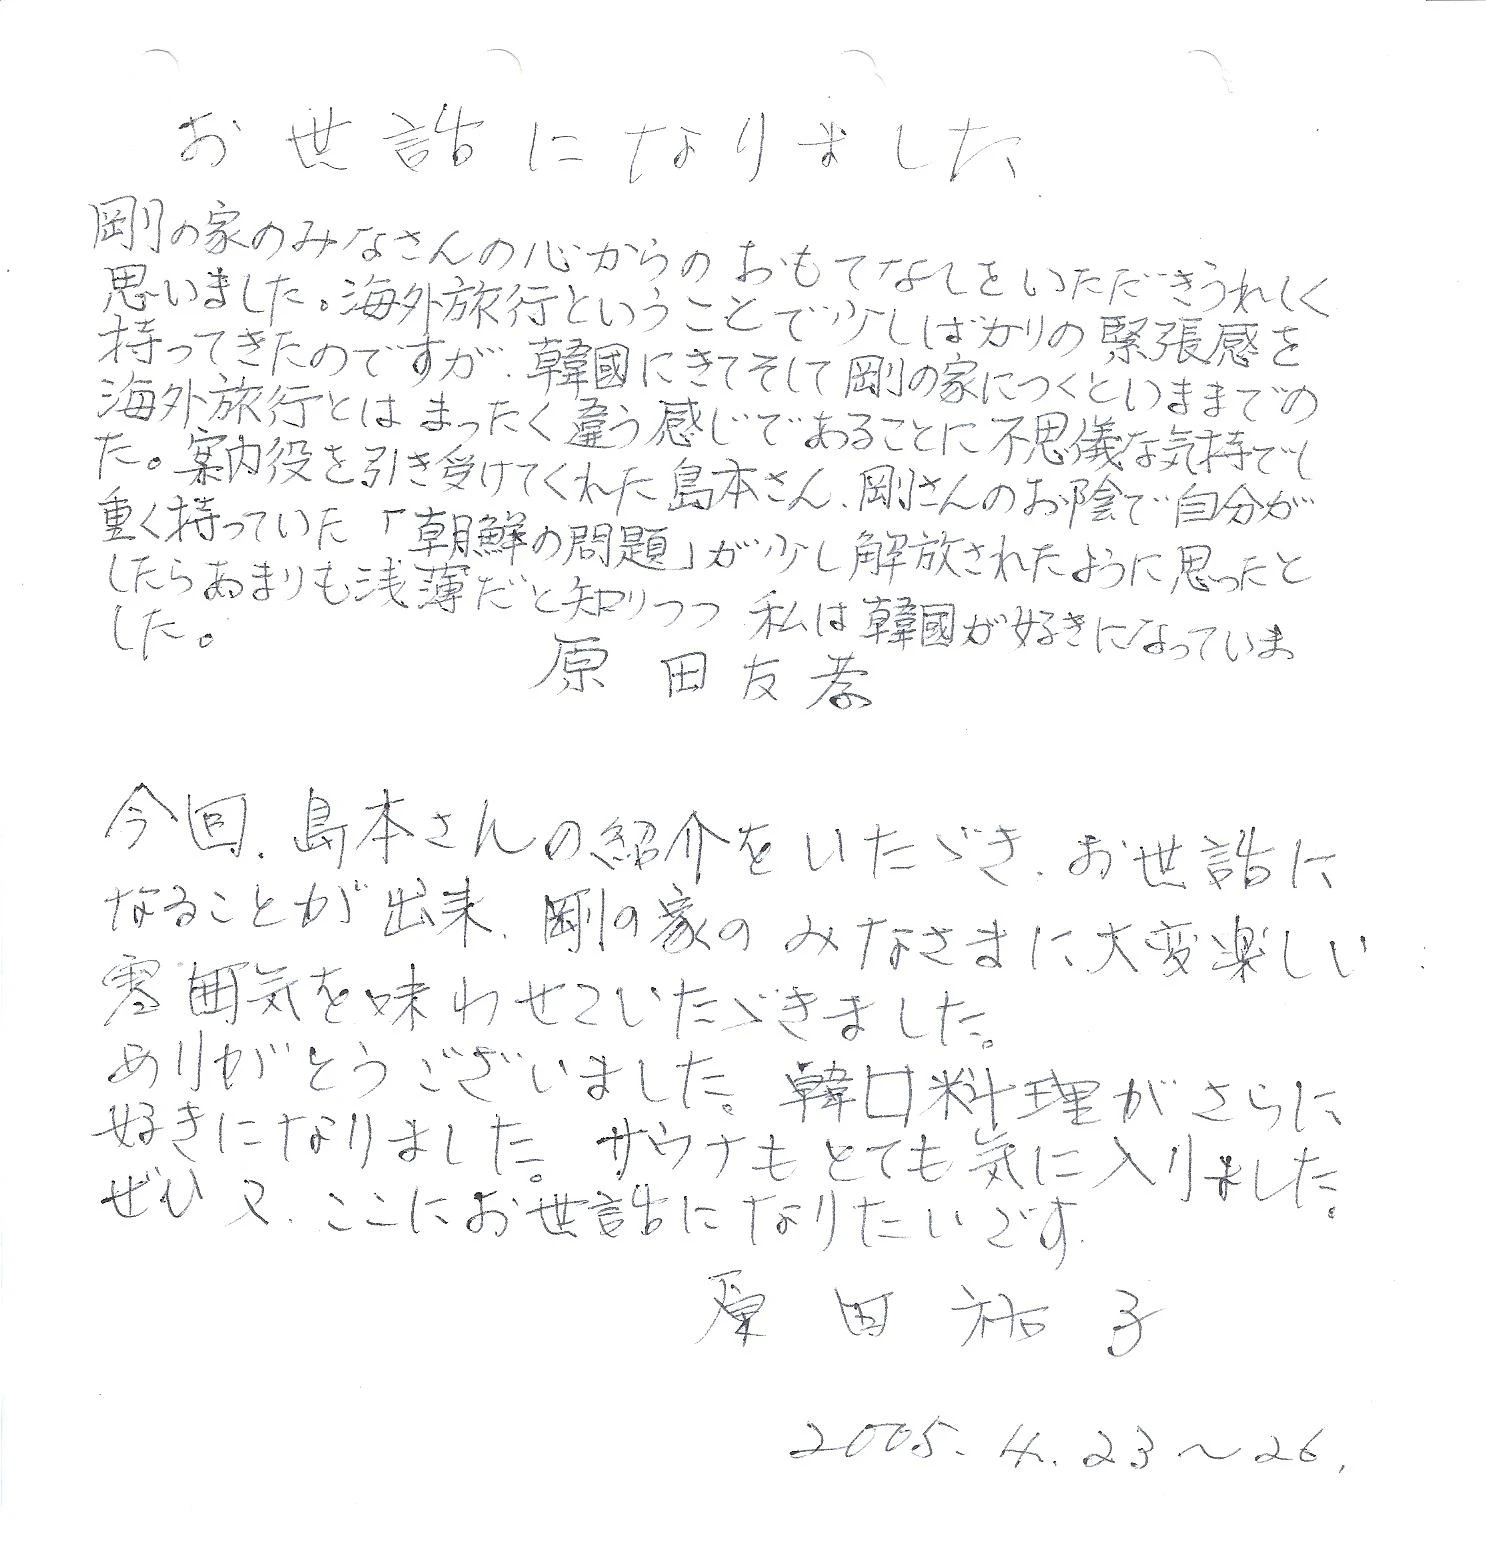 お世話になりました
剛の家のみなさんの心からのおもてなしをいただきうれしく
思いました。海外旅行ということで少しばかりの緊張感を
持ってきたのですが、韓國にきてそして剛の家につくといままでの
海外旅行とはまったく違う感じであることに不思儀な気持でし
た。案内役を引き受けてくれた島本さん、剛さんのお陰で自分が
重く持っていた「朝鮮の問題」が少し解放されたように思ったと
したらあまりも浅薄だと知りつつ 私は韓國が好きになっていま
した。
原田友
今回、島本さんの紹介をいたゞき、お世話に
なることが出来、剛の家のみなさまに大変楽しい
雰囲気を味わせていたゞきました。
ありがとうございました。韓口料理がさらに
好きになりました。サウナもとても気に入りました。
ぜひ又、ここにお世話になりたいです。
原田祐子
2005.4.23〜26.